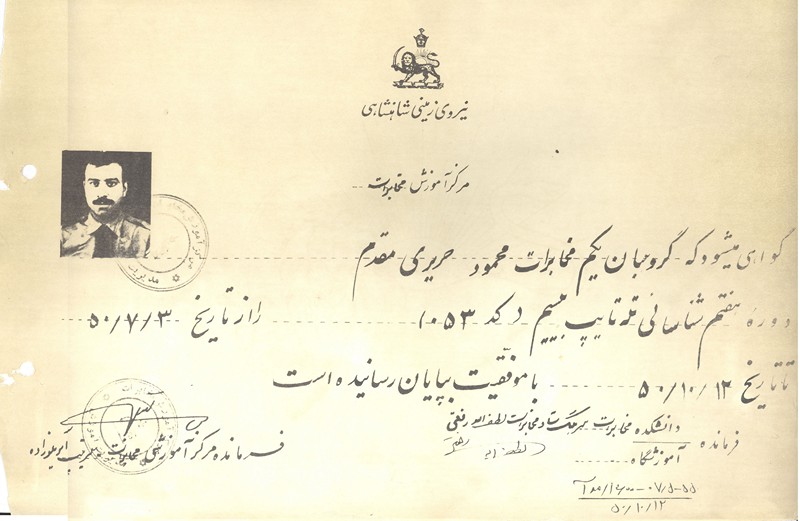 نیروی زمینی شاهنشاهی
مرکز آموزش مخابرات
گواهی میشود که گروهبان یکم مخابرات محمود حریری مقدم
دوره هفتم شناسائی تله تایپ بیسیم (کد ۱۰۵۳) را از تاریخ ۵۰/۷/۳
تا تاریخ ۵۰/۱۰/۱۲ با موفقیت بپایان رسانیده است
فرمانده دانشکده مخابرات سرهنگ ستاد مخابرات لطف اله رفقتی
آموزشگاه
فرمانده مرکز آموزش مخابرات سرتیپ
۵۰/۱۰/۱۲